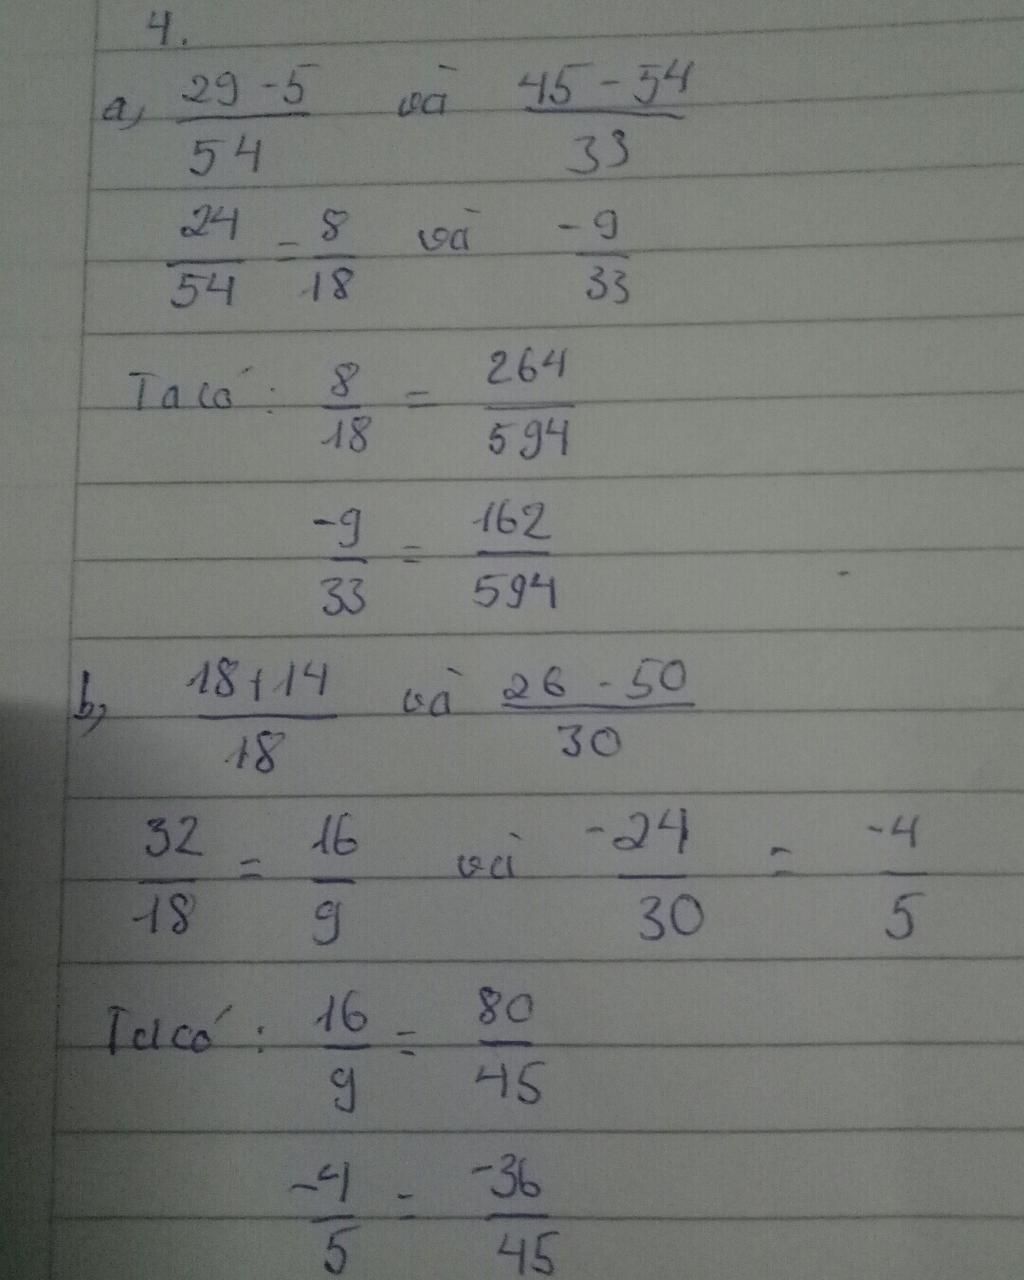 4.
a, (29 - 5)/54 và (45 - 54)/33
24/54 = 8/18 và -9/33
Ta có: 8/18 = 264/594
-9/33 = 162/594
b, (18 + 14)/18 và (26 - 50)/30
32/18 = 16/9 và -24/30 = -4/5
Ta có: 16/9 = 80/45
-4/5 = -36/45